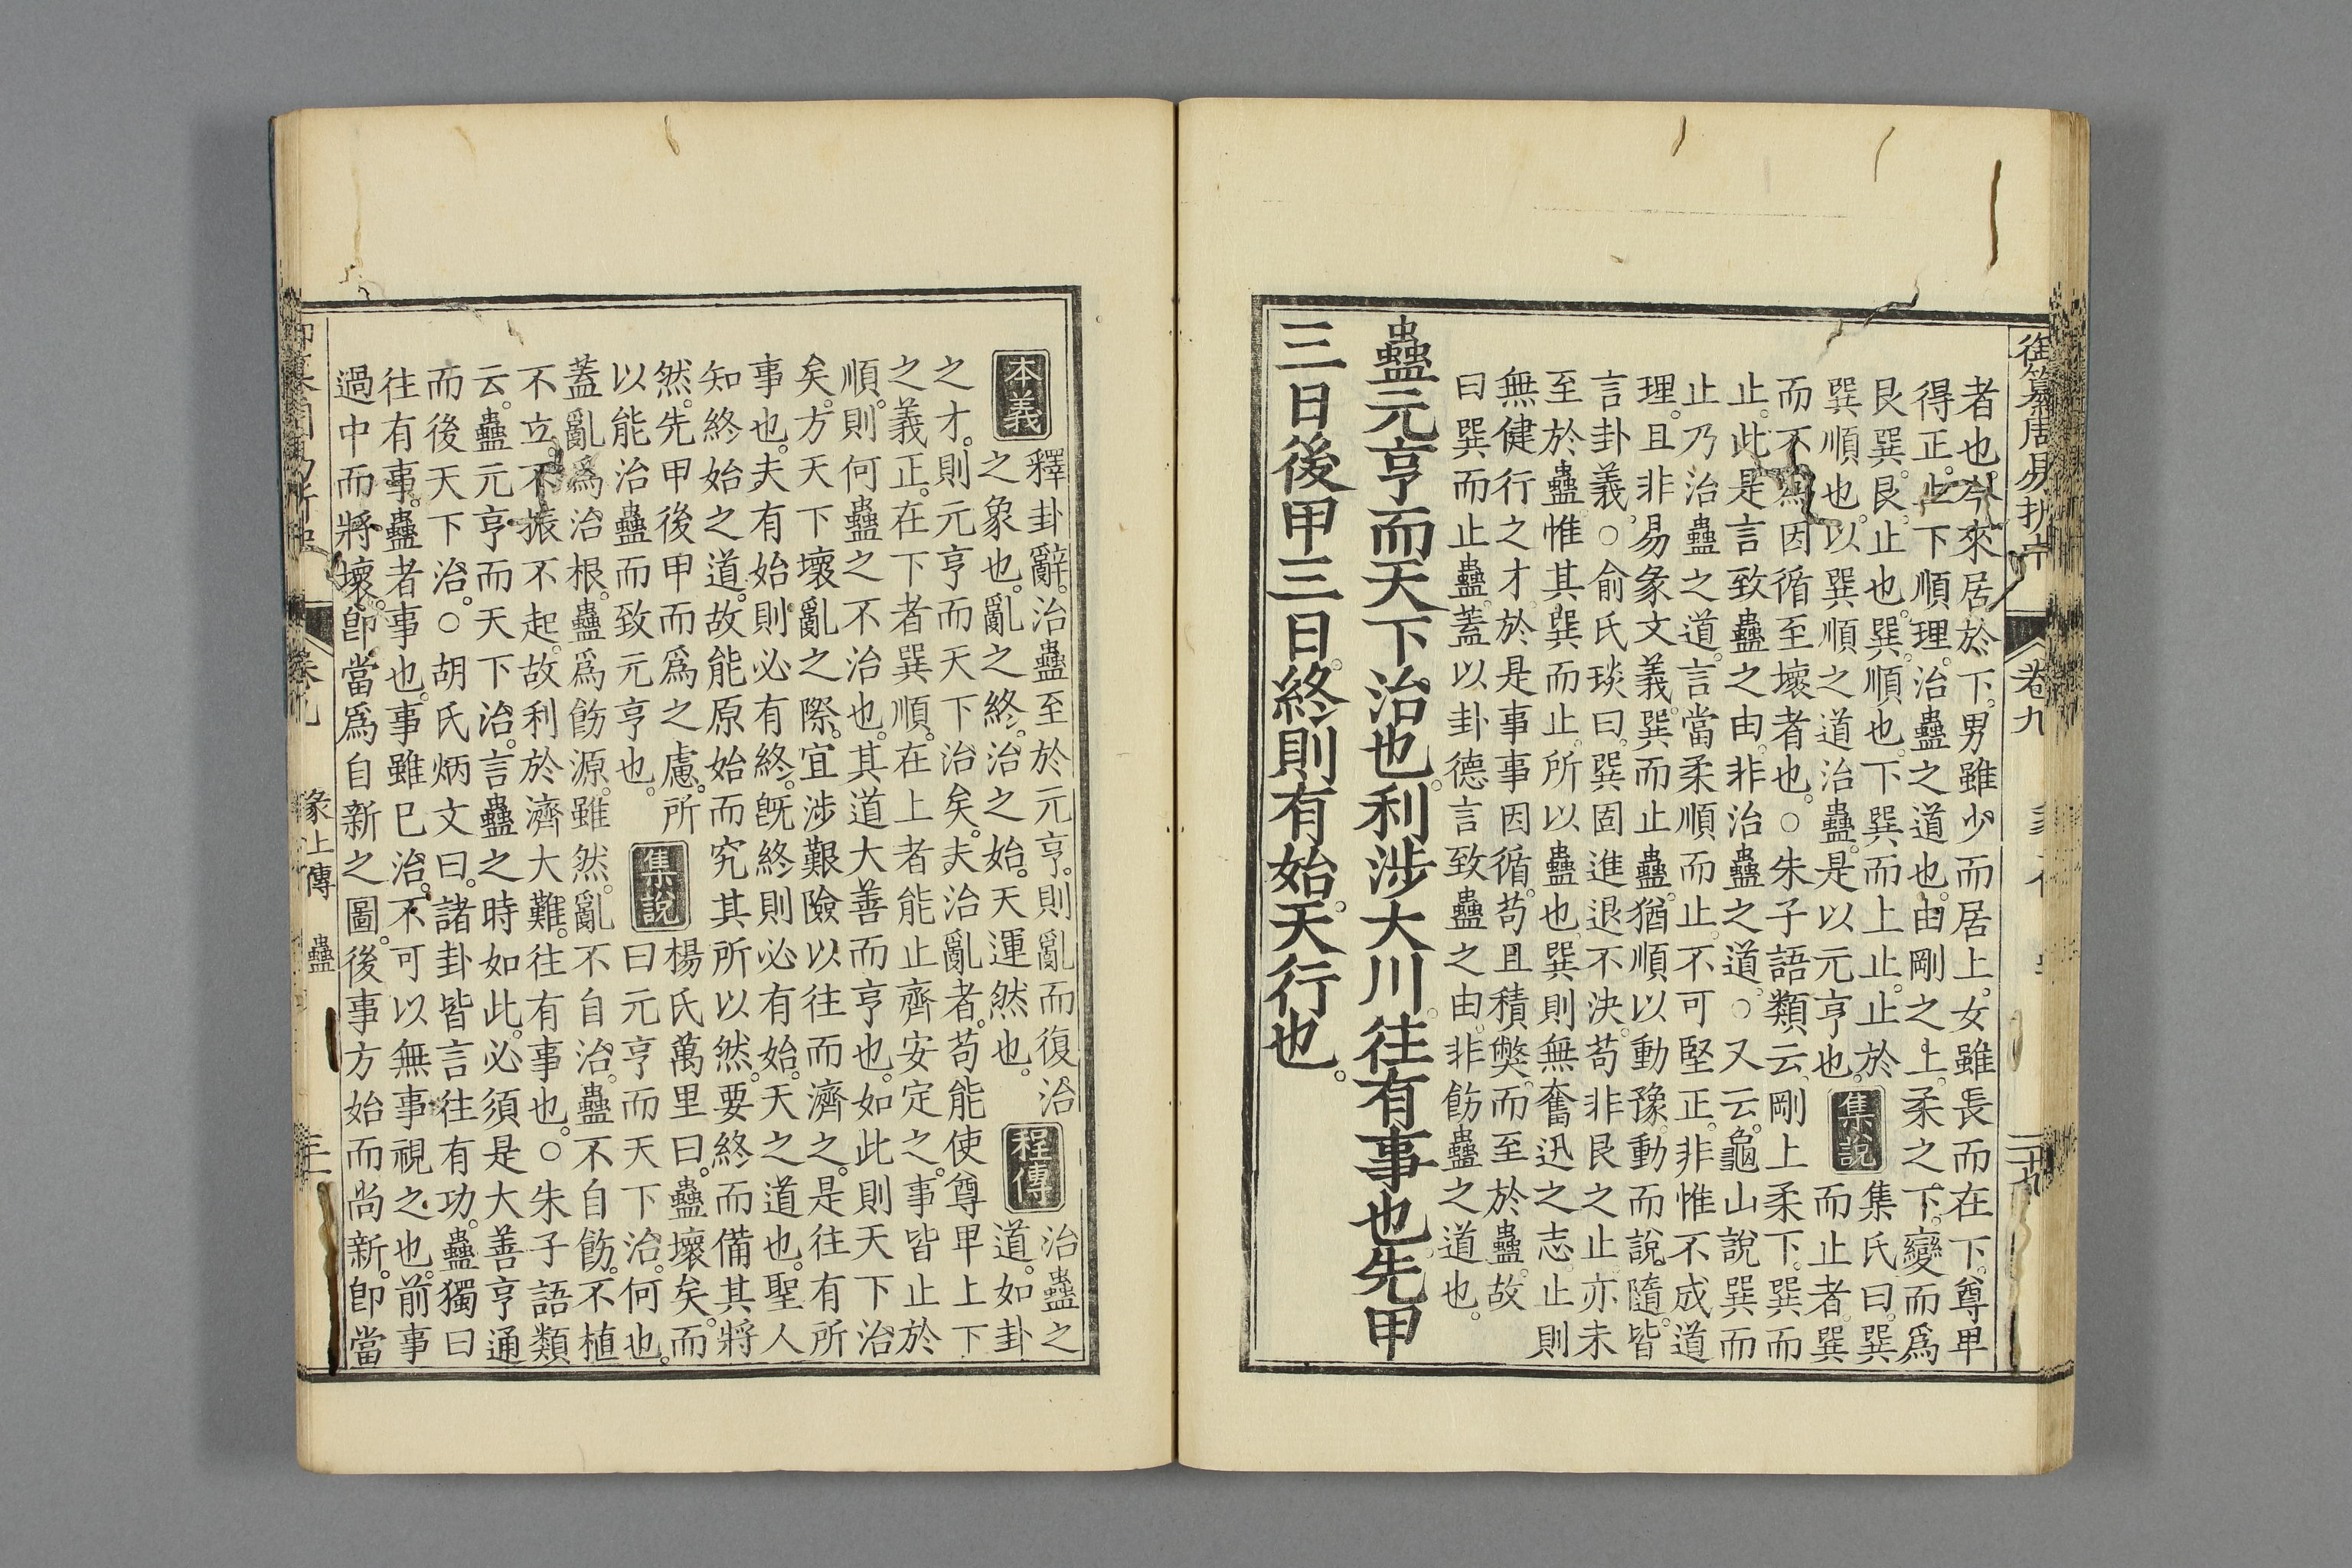 御纂周易折中
卷九
者也今來居於下男雖少而居上女雖長而在下尊卑
得正上下順理治蠱之道也由剛之上柔之下變而爲
艮巽艮止也巽順也下巽而上止止於集氏曰巽
巽順也以巽順之道治蠱是以元亨也集說而止者巽
而不爲因循至壞者也○朱子語類云剛上柔下巽而
止此是言致蠱之由非治蠱之道○又云龜山說巽而
止乃治蠱之道言當柔順而止不可堅正非惟不成道
理且非易彖文義巽而止蠱猶順以動豫動而說隨皆
言卦義○俞氏琰曰巽固進退不決苟非艮之止亦未
至於蠱惟其巽而止所以蠱也巽則無奮迅之志止則
無健行之才於是事事因循苟且積弊而至於蠱故
曰巽而止蠱蓋以卦德言致蠱之由非飭蠱之道也
蠱元亨而天下治也利涉大川往有事也先甲
三日後甲三日終則有始天行也
本義
釋卦辭治蠱至於元亨則亂而復治
之象也亂之終治之始天運然也
程傳
治蠱之
道如卦
之才則元亨而天下治矣夫治亂者苟能使尊卑上下
之義正在下者巽順在上者能止齊安定之事皆止於
順則何蠱之不治也其道大善而亨也如此則天下治
矣方天下壞亂之際宜涉艱險以往而濟之是往有所
事也夫有始則必有終旣終則必有始天之道也聖人
知終始之道故能原始而究其所以然要終而備其將
然先甲後甲而爲之慮所
以能治蠱而致元亨也
集說
楊氏萬里曰蠱壞矣而
曰元亨而天下治何也
蓋亂爲治根蠱爲飭源雖然亂不自治蠱不自飭不植
不立不振不起故利於濟大難往有事也○朱子語類
云蠱元亨而天下治言蠱之時如此必須是大善亨通
而後天下治○胡氏炳文曰諸卦皆言往有功蠱獨曰
往有事蠱者事也事雖已治不可以無事視之也前事
過中而將壞卽當爲自新之圖後事方始而尚新卽當
彖上傳 蠱